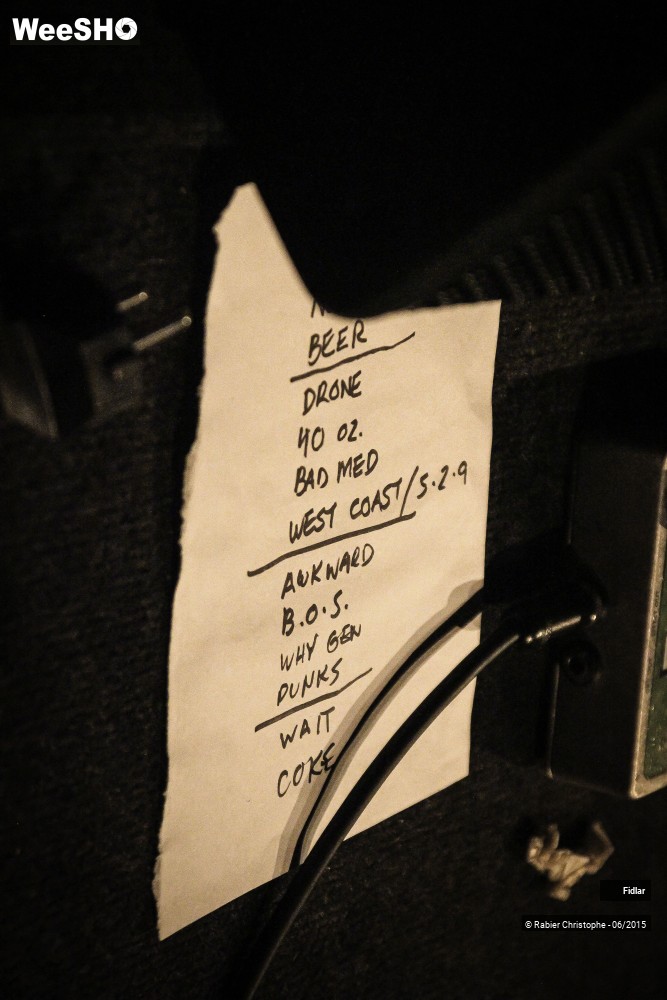 WeeSHO
BEER
DRONE
40 OZ.
BAD MED
WEST COAST/5.2.9
AWKWARD
B.O.S.
WHY GEN
PUNKS
WAIT
COKE
Fidlar
© Rabier Christophe - 06/2015